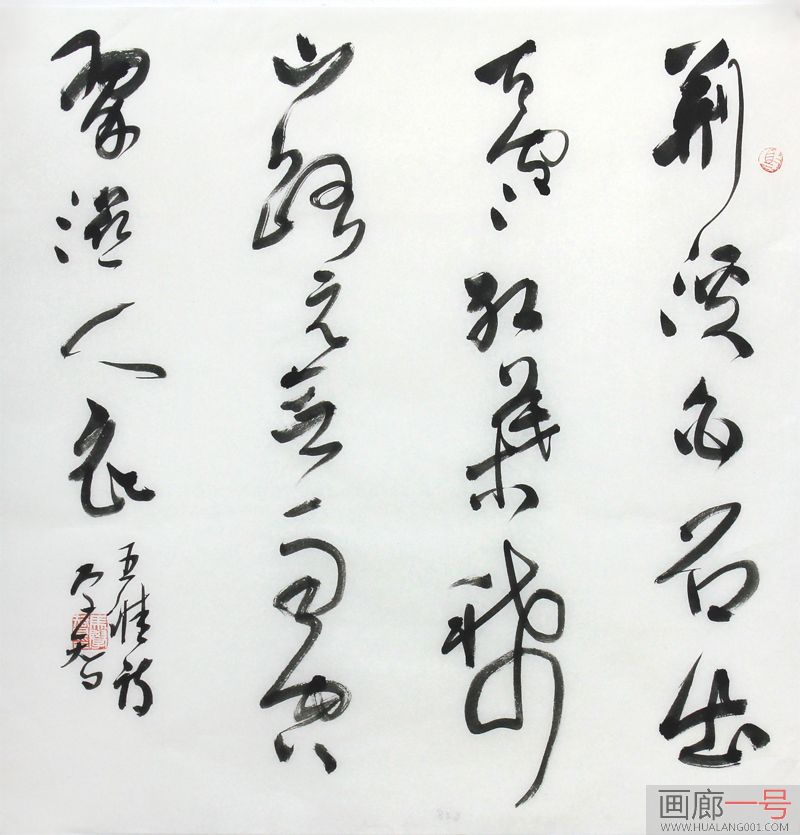 荆溪白石出
天寒紅葉稀
山路元無雨空
翠濕人衣
王維詩
画廊一号
WWW.HUALANG001.COM